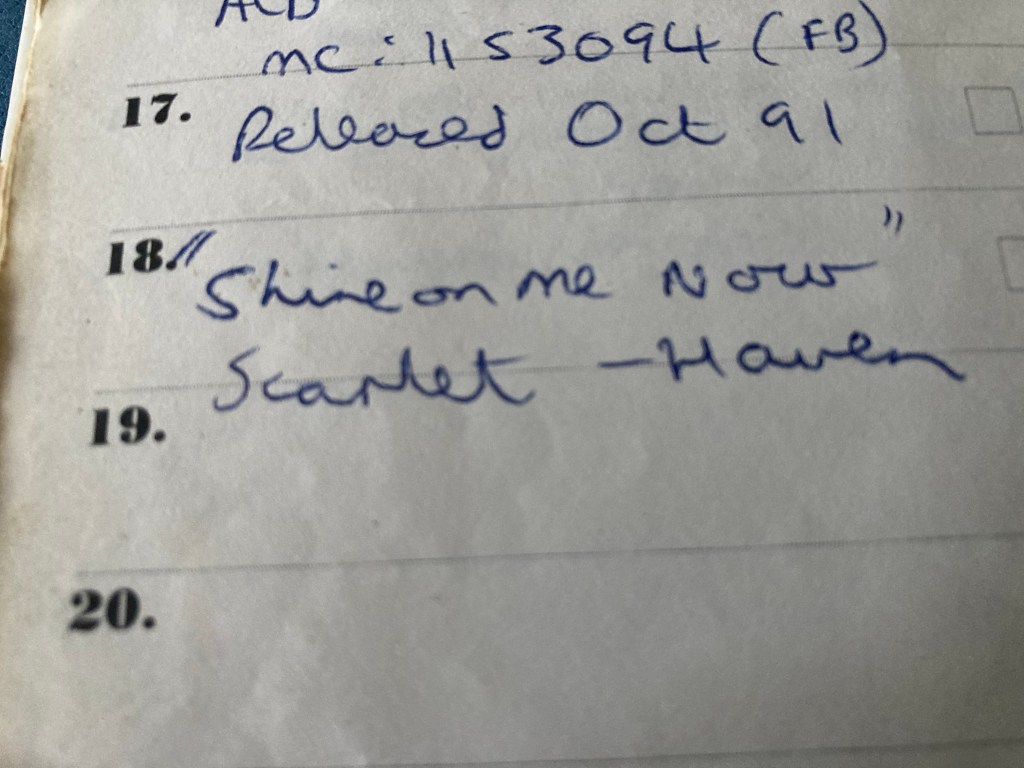 ACD
mc: 1153094 (FB)
17. Released Oct 91
18. "Shine on me Now"
Scarlet - Haven
19.
20.